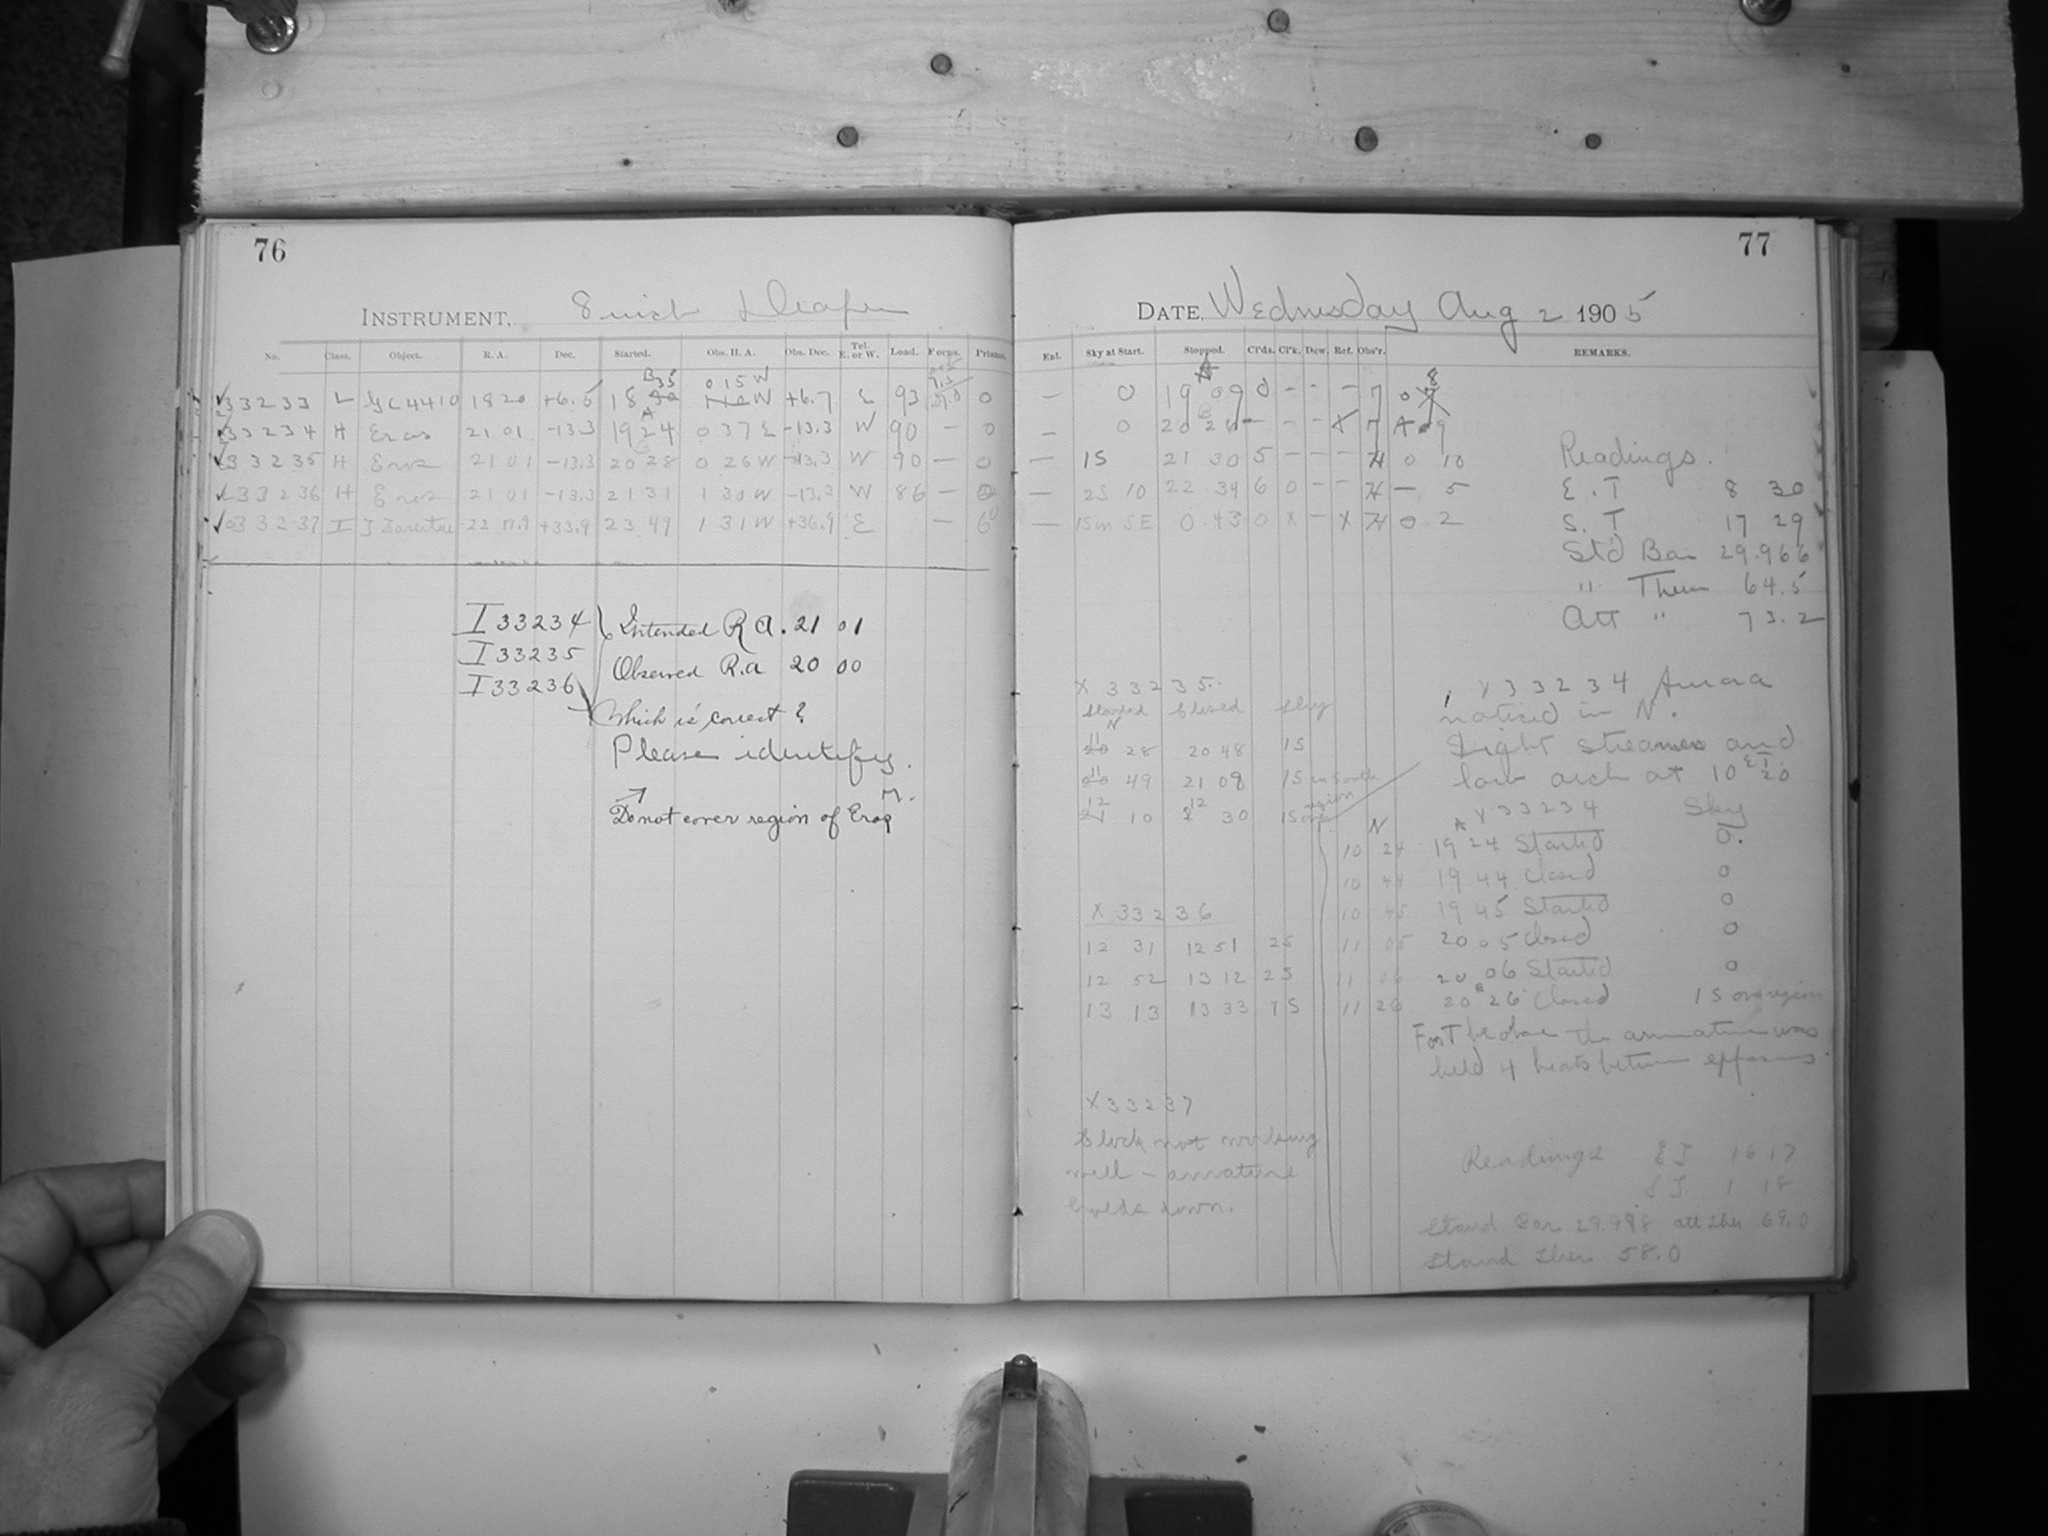 76
INSTRUMENT, 8 inch Draper
No. Class. Object. R. A. Dec. Started. Obs. H. A. Obs. Dec. Tel. E. or W. Load. Focus. Prisms.
33233 L GC4410 18 20 +6.5 18 35 0 15 W +6.7 E 93 0
33234 H Eros 21 01 -13.3 19 24 0 37 E -13.3 W 90 — 0
33235 H Eros 21 01 -13.3 20 28 0 26 W -13.3 W 90 — 0
33236 H Eros 21 01 -13.3 21 31 1 30 W -13.3 W 86 — 0
33237 I 22 +33.9 23 49 1 31 W +36.9 E — 6
I 33234 Intended R.A. 21 01
I 33235
Observed R.a 20 00
I 33236
Which is correct?
Please identify.
Do not cover region of Eros M.
77
DATE, Wednesday Aug 2 1905
Ext. Sky at Start. Stopped. Cl'ds. Cl'k. Dew. Ref. Obs'r. REMARKS.
— 0 19 09 0 - - - 7 0 8
— 0 20 26 - - - X 7 A 9
— 1S 21 30 5 - - - H 0 10
— 2S 10 22 34 6 0 - - H — 5
— 1S in SE 0 43 0 X - X H 0 2
Readings.
E.T 8 30
S.T 17 29
Std Bar 29.966
" Ther 64.5
Att " 73.2
X 33235
Started Closed Sky
N
11 28 20 48 1S
11 49 21 09 1S in South region
12 10 12 30 1S
X 33236
12 31 12 51 2S
12 52 13 12 2S
13 13 13 33 1S
X 33237
Clock not working
well – armature
holds down.
X 33234 Aurora
noticed in N.
Light streamers and
low arch at 10 20 E T
X 33234 Sky
N
10 24 A 19 24 Started 0.
10 44 19 44 Closed 0
10 45 19 45 Started 0
11 05 20 05 Closed 0
11 06 20 06 Started 0
11 26 20 26 Closed 1S over region
the armature was
held 4 beats between
Readings E T 16 17
S T 1 18
Stand Bar 29.998 att ther 69.0
Stand ther 58.0